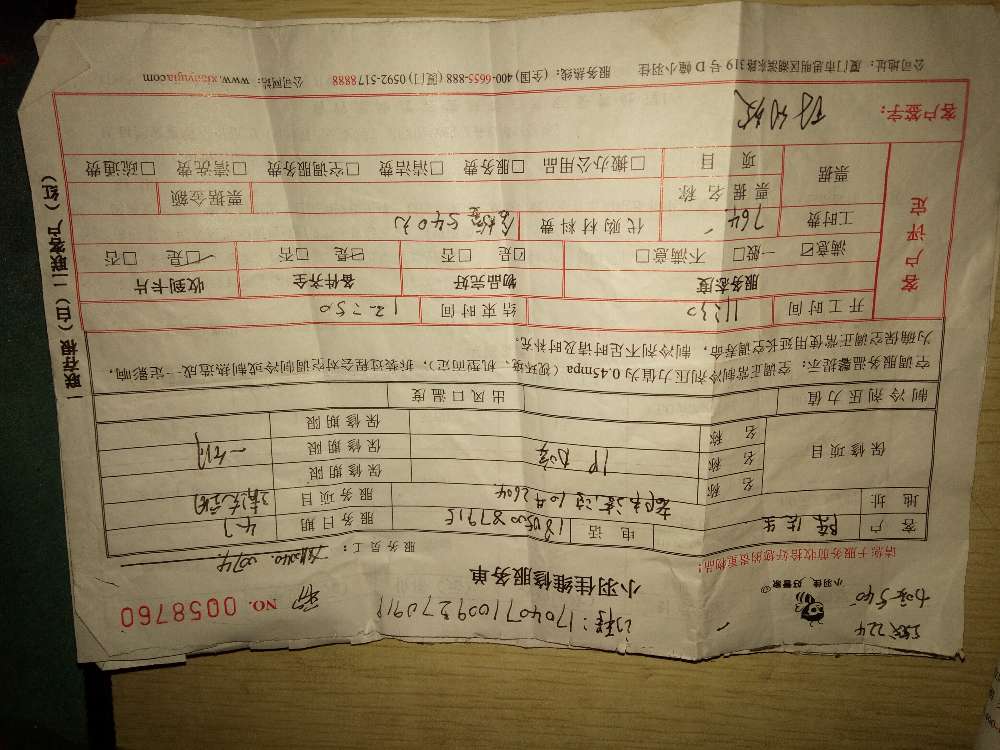 小羽佳 好管家
请您于服务前收拾好您的贵重物品!
小羽佳维修服务单
NO. 0058760
服务员工:
客户
电话
服务日期 4.7
地址
服务项目
保修项目
名称
保修期限
名称
保修期限
名称
保修期限
制冷剂压力值
出风口温度
空调服务温馨提示:空调正常制冷剂压力值为0.45mpa(视环境、机型而定),拆装过程会对空调制冷或制热造成一定影响,
为确保空调正常使用延长空调寿命,制冷剂不足时请及时补充。
客户评定
开工时间 11:30
结束时间 12:50
服务态度
物品完好
备件齐全
收到卡片
满意 一般 不满意
是 否
是 否
是 否
工时费 764
代购材料费 540元
票据
票据名称
票据金额
项目
搬办公用品 服务费 清洁费 空调服务费 清洗费 疏通费
客户签字:
公司地址:厦门市思明区湖滨东路319号D幢小羽佳 服务热线:(全国)400-6655-888 (厦门)0592-5178888 公司网站:www.xiaoyujia.com
一联存根(白)二联客户(红)